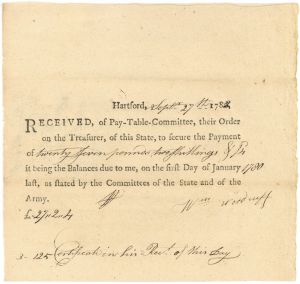 Hartford, Sept. 27th 1782
RECEIVED, of Pay-Table-Committee, their Order
on the Treasurer, of this State, to secure the Payment
of twenty Seven pounds two shillings &
it being the Balances due to me, on the first Day of January 1780
last, as stated by the Committees of the State and of the
Army.
£27.2.4
Wm
3-125 Certificate in his Rect. of this Day